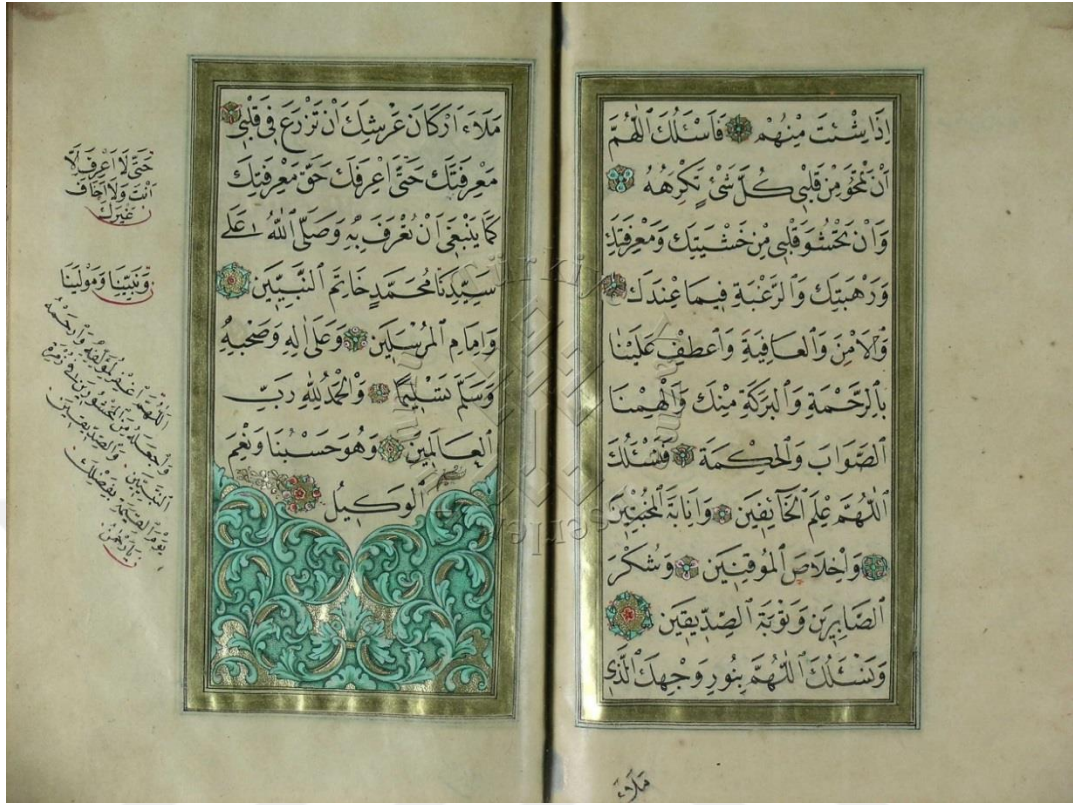 اِذَا شِئْتَ مِنْهُمْ فَاَسْئَلُكَ اللّٰهُمَّ
اَنْ تَمْحُوَ مِنْ قَلْبِى كُلَّ شَىْءٍ تَكْرَهُهُ
وَاَنْ تَحْشُوَ قَلْبِى مِنْ خَشْيَتِكَ وَمَعْرِفَتِكَ
وَرَهْبَتِكَ وَالرَّغْبَةِ فِيمَا عِنْدَكَ
وَالْاَمْنَ وَالْعَافِيَةَ وَاعْطِفْ عَلَيْنَا
بِالرَّحْمَةِ وَالْبَرَكَةِ مِنْكَ وَاَلْهِمْنَا
الصَّوَابَ وَالْحِكْمَةَ فَنَسْئَلُكَ
اللّٰهُمَّ عِلْمَ الْخَائِفِينَ وَاِنَابَةَ الْمُخْبِتِينَ
وَاِخْلَاصَ الْمُوقِنِينَ وَشُكْرَ
الصَّابِرِينَ وَتَوْبَةَ الصِّدِّيقِينَ
وَنَسْئَلُكَ اللّٰهُمَّ بِنُورِ وَجْهِكَ الَّذِى
مَلَاَءَ
مَلَاَءَ اَرْكَانَ عَرْشِكَ اَنْ تَزْرَعَ فِى قَلْبِى
مَعْرِفَتَكَ حَتّٰى اَعْرِفَكَ حَقَّ مَعْرِفَتِكَ
كَمَا يَنْبَغِى اَنْ تُعْرَفَ بِهِ وَصَلَّى اللّٰهُ عَلٰى
سَيِّدِنَا مُحَمَّدٍ خَاتِمَ النَّبِيِّينَ
وَاِمَامِ الْمُرْسَلِينَ وَعَلٰى اٰلِهِ وَصَحْبِهِ
وَسَلَّمَ تَسْلِيمًا وَالْحَمْدُ لِلّٰهِ رَبِّ
الْعَالَمِينَ وَهُوَ حَسْبُنَا وَنِعْمَ
الْوَكِيلُ
حَتّٰى لَا اَعْرِفَ اِلَّا
اَنْتَ وَلَا اَخَافَ
غَيْرَكَ
وَنَبِيِّنَا وَمَوْلٰينَا
اَللّٰهُمَّ اغْفِرْ لِمُؤَلِّفِهِ وَارْحَمْهُ
وَاجْعَلْهُ مِنَ الْمَحْشُورِينَ فِى زُمْرَةِ
النَّبِيِّينَ وَالصِّدِّيقِينَ
يَوْمَ الْقِيٰمَةِ بِفَضْلِكَ
يَا رَحْمٰنُ